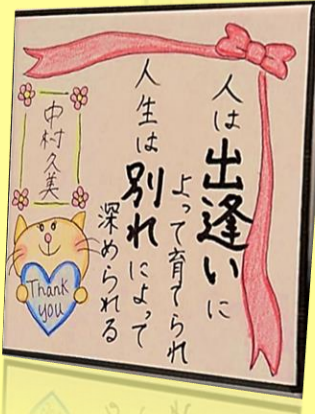 人は出逢いに
よって育てられ
人生は
別れによって
深められる
中村久美
Thank
you